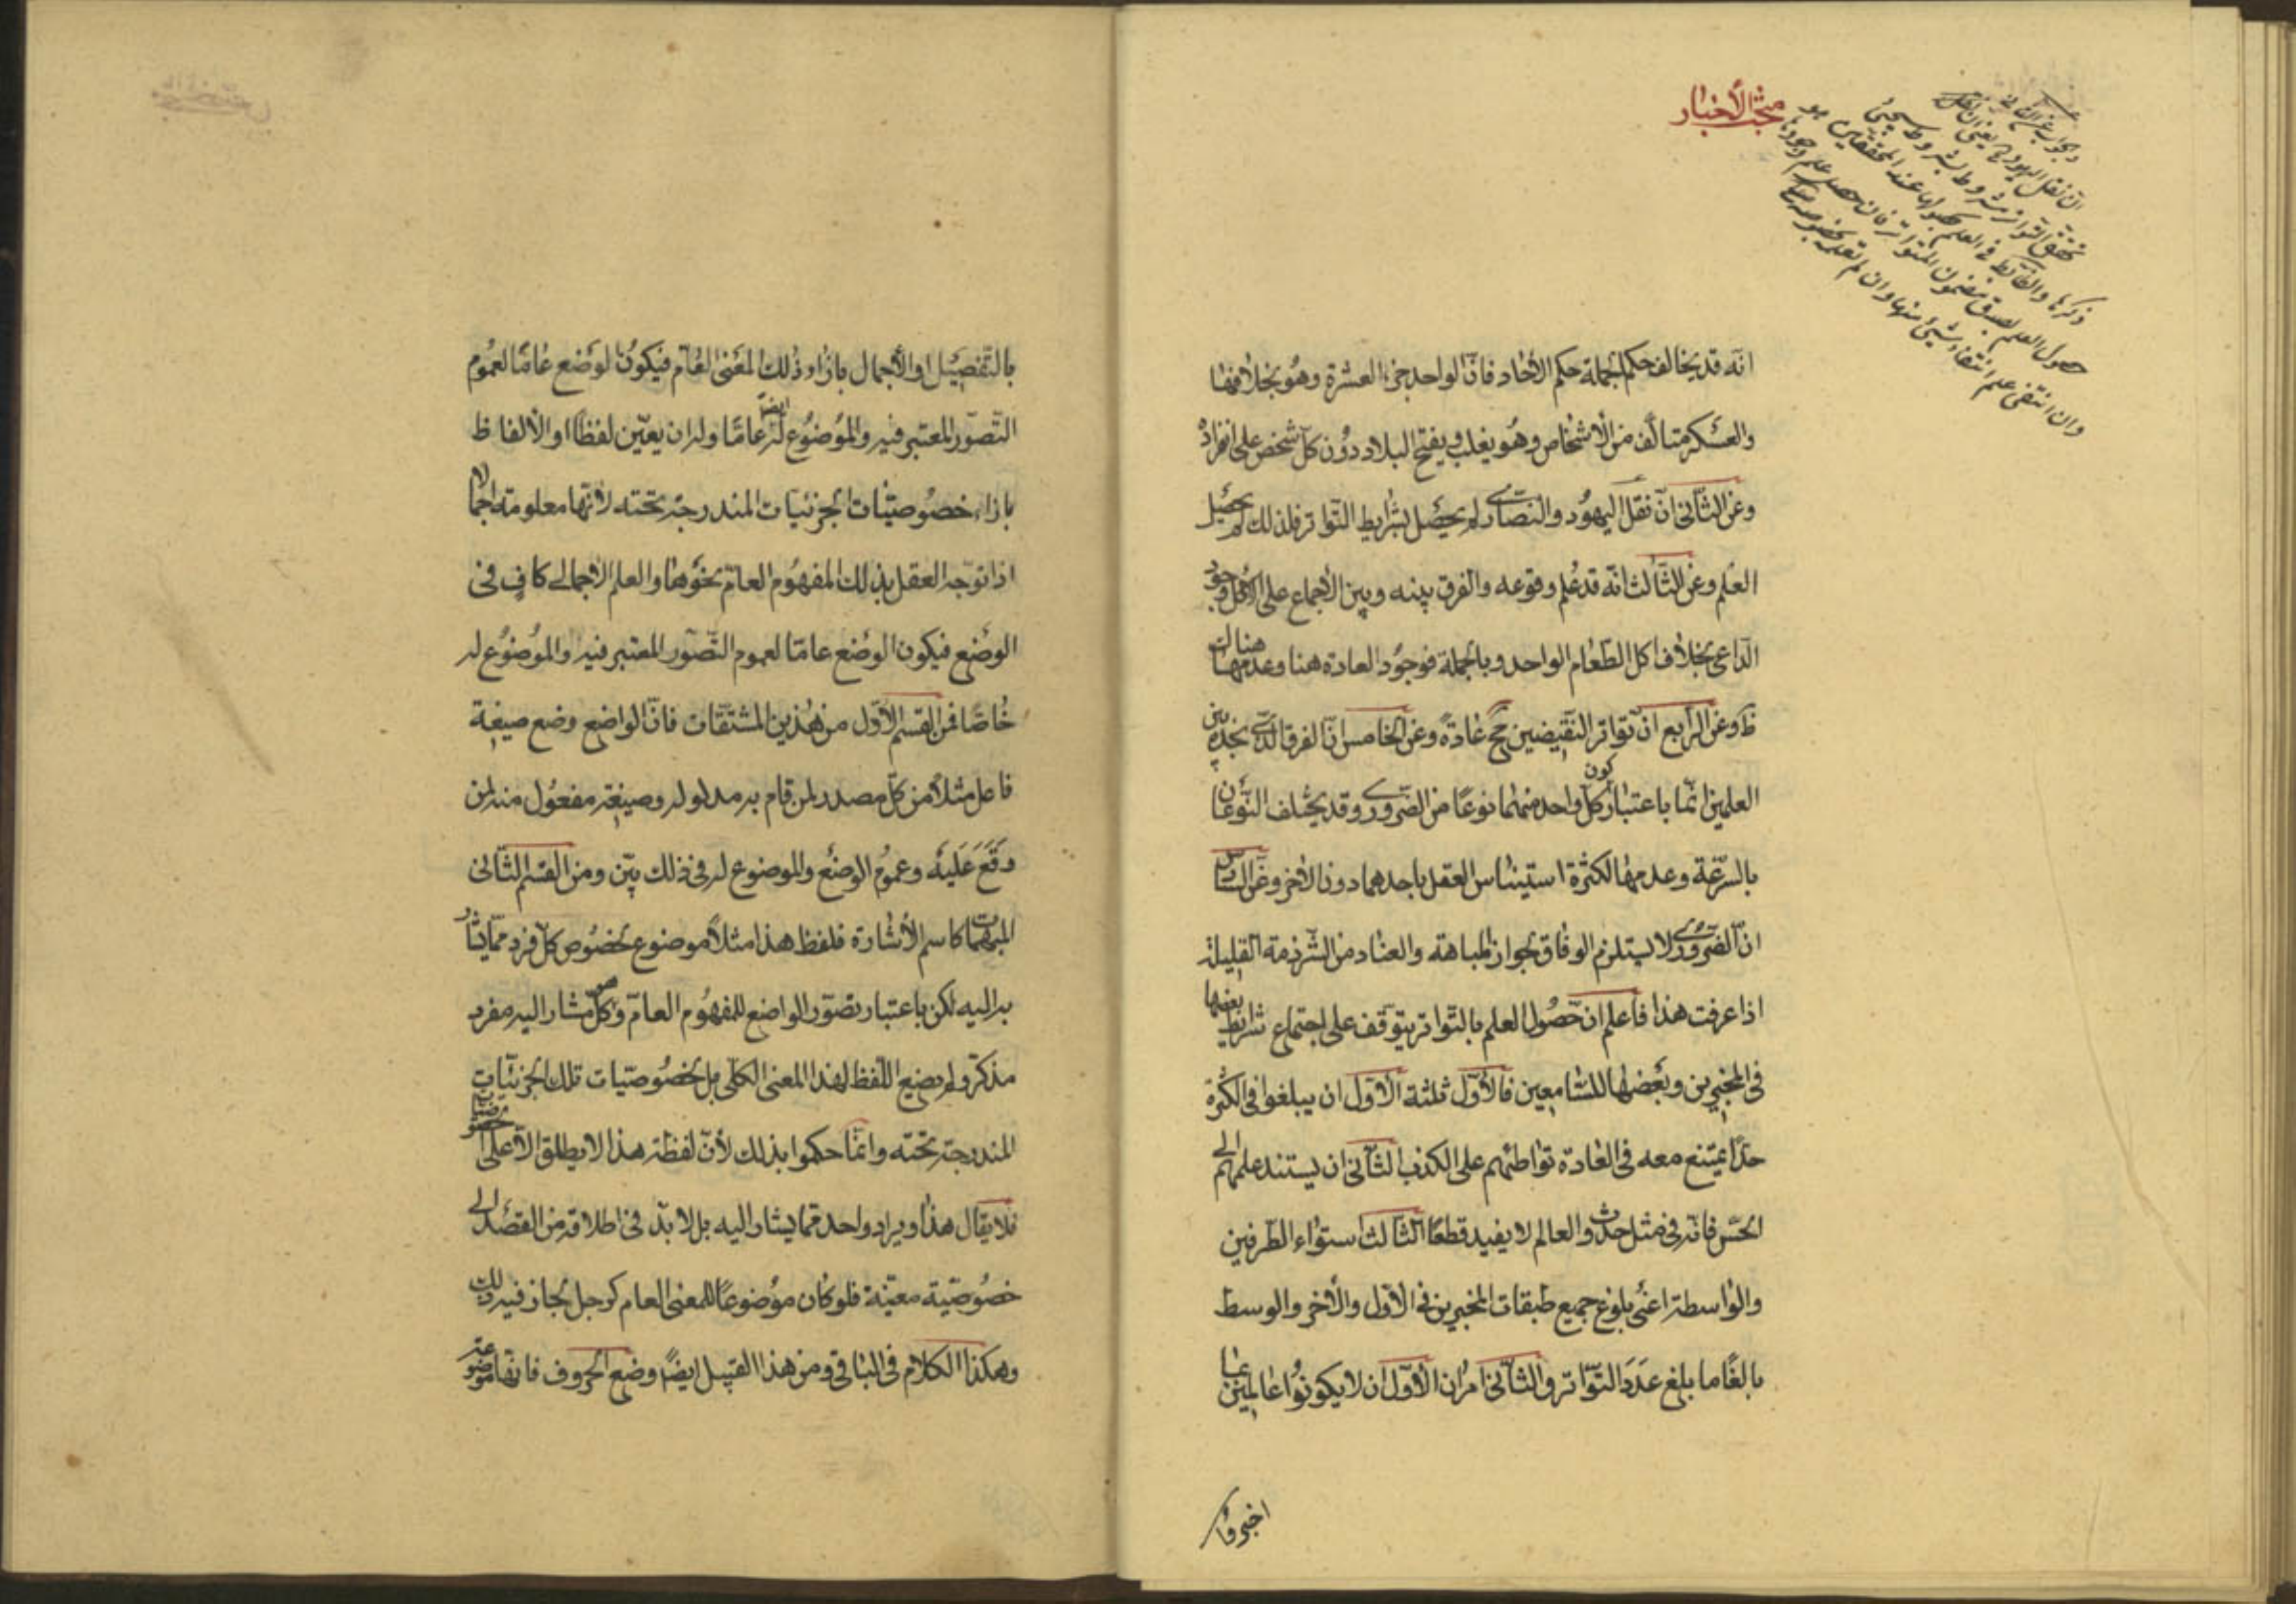 مبحث الأخبار
انّه قد يخالف حكم الجملة حكم الآحاد فانّ الواحد جزء العشرة وهو بخلافها
والعسكر متالّف من الأشخاص وهو يغلب ويفتح البلاد دون كلّ شخص على انفراده
وعن الثّانى انّ نقل اليهود والنصارى لم يحصل بشرايط التّواتر فلذلك لم يحصل
العلم وعن الثّالث انّه قد علم وقوعه والفرق بينه وبين الأجماع على الاكل وجود
الدّاعى بخلاف اكل الطّعام الواحد وبالجملة فوجود العادة هنا وعدمها هناك
ظ وعن الرّابع انّ تواتر النّقيضين مح عادة وعن الخامس انّ الفرق الّذى نجده بين
العلمين انّما باعتبار كون كلّ واحد منهما نوعًا من الضّرورى وقد يختلف النّوعان
بالسّرعة وعدمها لكثرة استيناس العقل باحدهما دون الأخر وعن السّادس
انّ الضّرورى لا يستلزم الوفاق لجواز المباهتة والعناد من الشّرذمة القليلة
اذا عرفت هذا فاعلم ان حصول العلم بالتّواتر يتوقّف على اجتماع شرايط بعضها
فى المخبرين وبعضها للسّامعين فالأوّل ثلثة الأوّل ان يبلغوا فى الكثرة
حدًّا يمتنع معه فى العادة تواطئهم على الكذب الثّانى ان يستند علمهم الى
الحسّ فانّه فى مثل حدوث العالم لا يفيد قطعًا الثّالث استواء الطّرفين
والواسطة اعنى بلوغ جميع طبقات المخبرين فى الأوّل والأخر والوسط
بالغًا ما بلغ عدد التّواتر والثّانى امران الأوّل ان لا يكونوا عالمين بما
اخبروا
بالتّفصيل او الأجمال بازاء ذلك المعنى العامّ فيكون الوضع عامًّا لعموم
التّصوّر المعتبر فيه والموضوع له ايضًا عامًّا وله ان يعيّن لفظًا او الألفاظ
بازاء خصوصيّات الجزئيات المندرجة تحته لأنّها معلومة اجمالا
اذا توجّه العقل بذلك المفهوم العامّ نحوها والعلم الأجمالى كافٍ فى
الوضع فيكون الوضع عامًّا لعموم التّصوّر المعتبر فيه والموضوع له
خاصًّا فمن القسم الأوّل من هذين المشتقّات فانّ الواضع وضع صيغة
فاعل مثلًا من كلّ مصدر لمن قام به مدلوله وصيغة مفعول منه لمن
وقع عليه وعموم الوضع والموضوع له فى ذلك بيّن ومن القسم الثّانى
المبهمات كاسم الأشارة فلفظ هذا مثلًا موضوع لخصوص كلّ فرد ممّا يشار
به اليه لكن باعتبار تصوّر الواضع للمفهوم العامّ وهو كلّ مشار اليه مفرد
مذكّر ولم يضع اللّفظ لهذا المعنى الكلّى بل لخصوصيّات تلك الجزئيّات
المندرجة تحته وانّما حكموا بذلك لأنّ لفظة هذا لا يطلق الّا على الخصوصيات
فلا يقال هذا ويراد واحد ممّا يشار اليه بل لا بدّ فى اطلاقه من القصد الى
خصوصيّة معيّنة فلو كان موضوعًا للمعنى العام كرجل لجاز فيه ذلك
وهكذا الكلام فى الباقى ومن هذا القبيل ايضًا وضع الحروف فانّها موضوعة